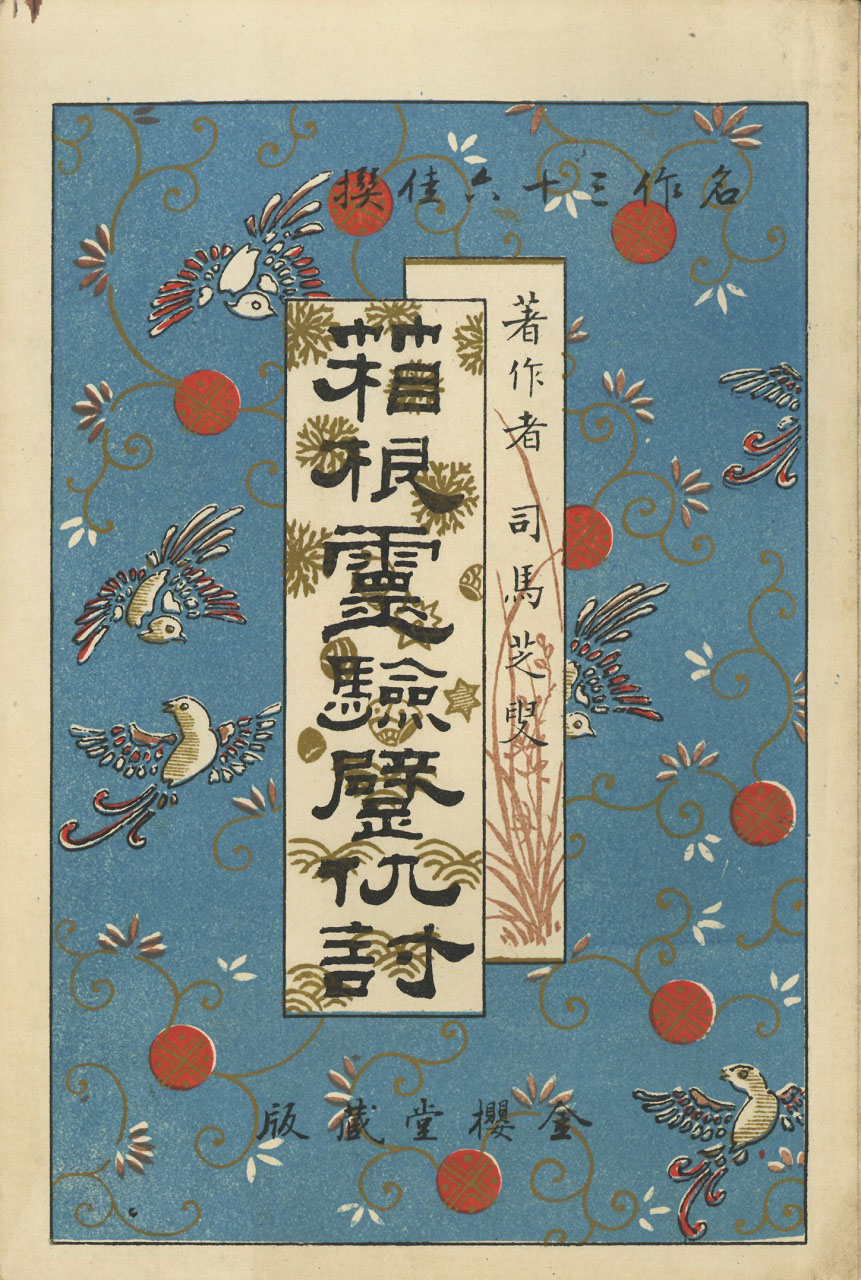 名作三十六佳撰
著作者 司馬芝叟
箱根靈驗躄仇討
金櫻堂藏版